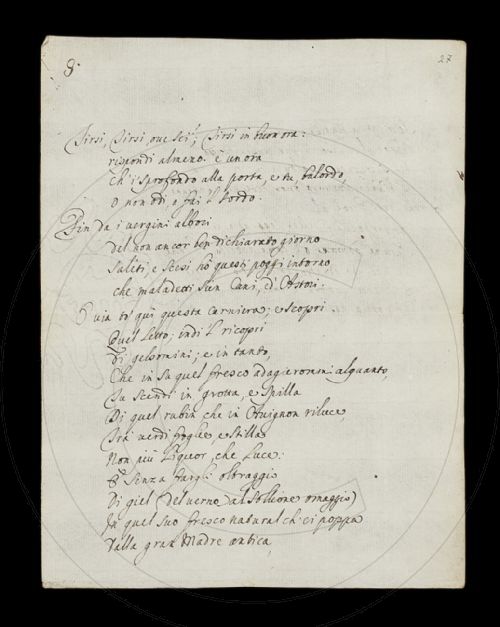 8.
27
Tirsi, Tirsi, oue sei; Tirsi in buon ora:
rispondi almeno. è un ora
Ch'i sprofondo alla porta, e tu balordo,
o non odi, o fai 'l sordo.
Fin da i uergini albori
del non ancor ben dichiarato giorno
saliti, e scesi hò questi poggi intorno
che maladetti sien Cani, ed Astori.
O uia tò qui questa Carniera; e scopri
Quel letto; indi 'l ricopri
Di gelsomini; e in tanto,
Che in su quel fresco adagierommi alquanto,
Tu scendi in grotta, e spilla
Di quel rubin che in Auignon riluce,
Trà uerdi foglie, e stilla
Non più Liquor, che Luce:
E senza fargli oltraggio
Di giel (del uerno al sollione omaggio)
In quel suo fresco natural ch'ei poppa
Dalla gran Madre antica,